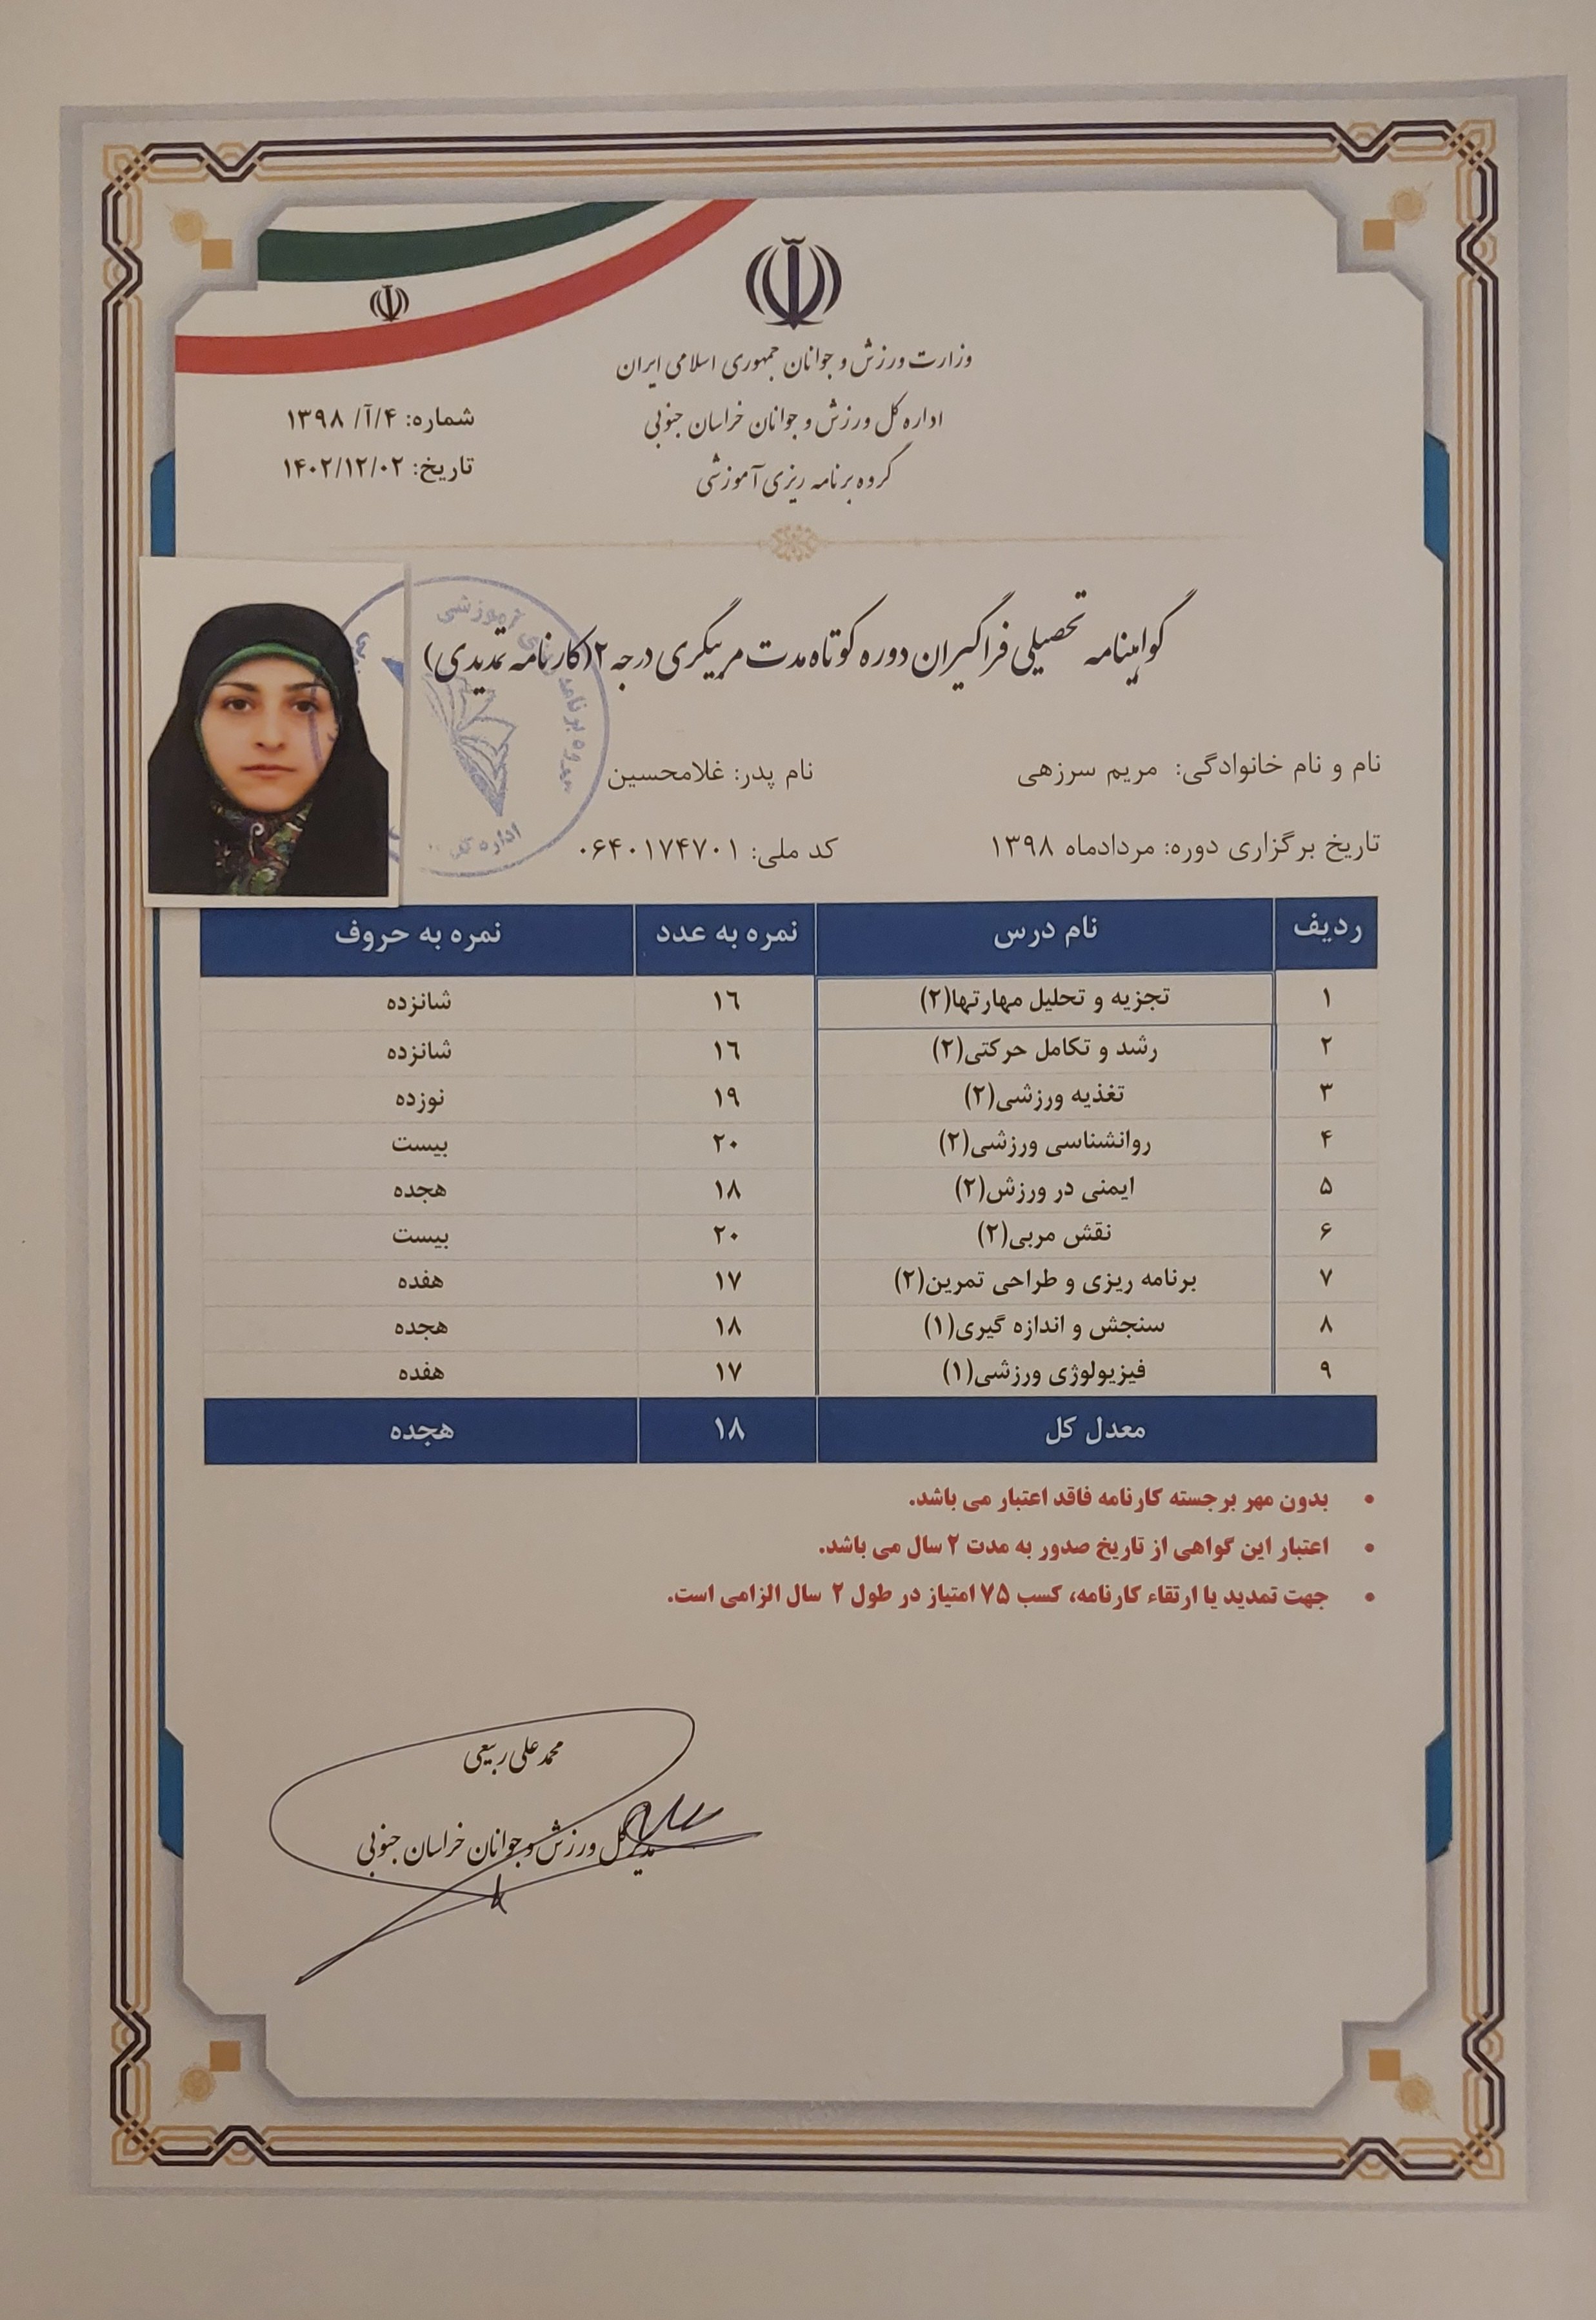 وزارت ورزش و جوانان جمهوری اسلامی ایران
اداره کل ورزش و جوانان خراسان جنوبی
گروه برنامه ریزی آموزشی
شماره: ۴/آ/ ۱۳۹۸
تاریخ: ۱۴۰۲/۱۲/۰۲
گواهینامه تحصیلی فراگیران دوره کوتاه مدت مربیگری درجه ۲(کارنامه تمدیدی)
نام و نام خانوادگی: مریم سرزهی نام پدر: غلامحسین
تاریخ برگزاری دوره: مردادماه ۱۳۹۸ کد ملی: ۰۶۴۰۱۷۴۷۰۱
ردیف نام درس نمره به عدد نمره به حروف
۱ تجزیه و تحلیل مهارتها(۲) ۱٦ شانزده
۲ رشد و تکامل حرکتی(۲) ۱٦ شانزده
۳ تغذیه ورزشی(۲) ۱۹ نوزده
۴ روانشناسی ورزشی(۲) ۲۰ بیست
۵ ایمنی در ورزش(۲) ۱۸ هجده
۶ نقش مربی(۲) ۲۰ بیست
۷ برنامه ریزی و طراحی تمرین(۲) ۱۷ هفده
۸ سنجش و اندازه گیری(۱) ۱۸ هجده
۹ فیزیولوژی ورزشی(۱) ۱۷ هفده
معدل کل ۱۸ هجده
• بدون مهر برجسته کارنامه فاقد اعتبار می باشد.
• اعتبار این گواهی از تاریخ صدور به مدت ۲ سال می باشد.
• جهت تمدید یا ارتقاء کارنامه، کسب ۷۵ امتیاز در طول ۲ سال الزامی است.
محمد علی ربیعی
مدیر کل ورزش و جوانان خراسان جنوبی